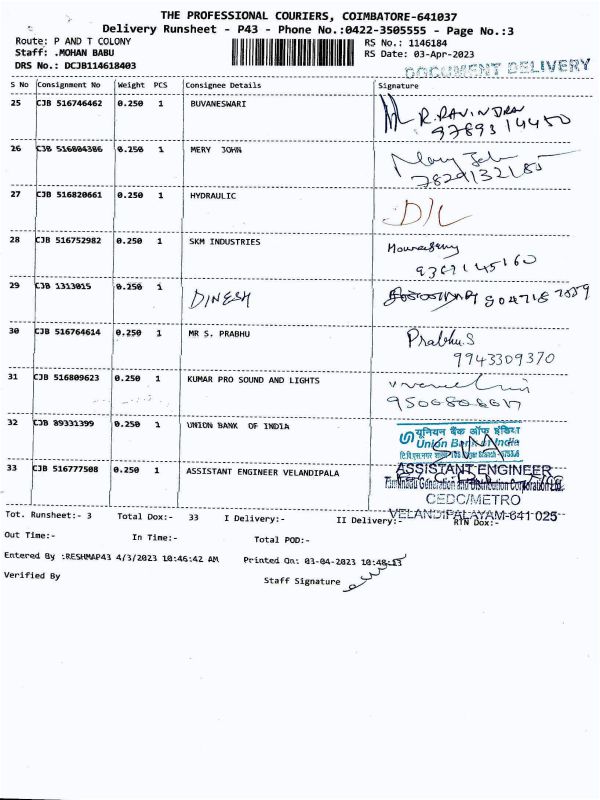 THE PROFESSIONAL COURIERS, COIMBATORE-641037
Delivery Runsheet - P43 - Phone No.:0422-3505555 - Page No.:3
Route: P AND T COLONY
RS No.: 1146184
Staff: .MOHAN BABU
RS Date: 03-Apr-2023
DRS No.: DCJB114618403
DOCUMENT DELIVERY
S No Consignment No Weight PCS Consignee Details Signature
25 CJB 516746462 0.250 1 BUVANESWARI R. RAVINDRA
9789314450
26 CJB 516804386 0.250 1 MERY JOHN Mary John
27 CJB 516820661 0.250 1 HYDRAULIC
28 CJB 516752982 0.250 1 SKM INDUSTRIES
9367145160
29 CJB 1313015 0.250 1 DINESH
30 CJB 516764614 0.250 1 MR S. PRABHU Prabhu S
9943309370
31 CJB 516809623 0.250 1 KUMAR PRO SOUND AND LIGHTS
32 CJB 89331399 0.250 1 UNION BANK OF INDIA यूनियन बैंक ऑफ इंडिया
Union Bank of India
33 CJB 516777508 0.250 1 ASSISTANT ENGINEER VELANDIPALA ASSISTANT ENGINEER
Tamilnadu Generation and Distribution Corporation Ltd.
CEDC/METRO
VELANDIPALAYAM-641 025
Tot. Runsheet:- 3 Total Dox:- 33 I Delivery:- II Delivery:- RTN Dox:-
Out Time:- In Time:- Total POD:-
Entered By :RESHMAP43 4/3/2023 10:46:42 AM Printed On: 03-04-2023 10:48:13
Verified By Staff Signature